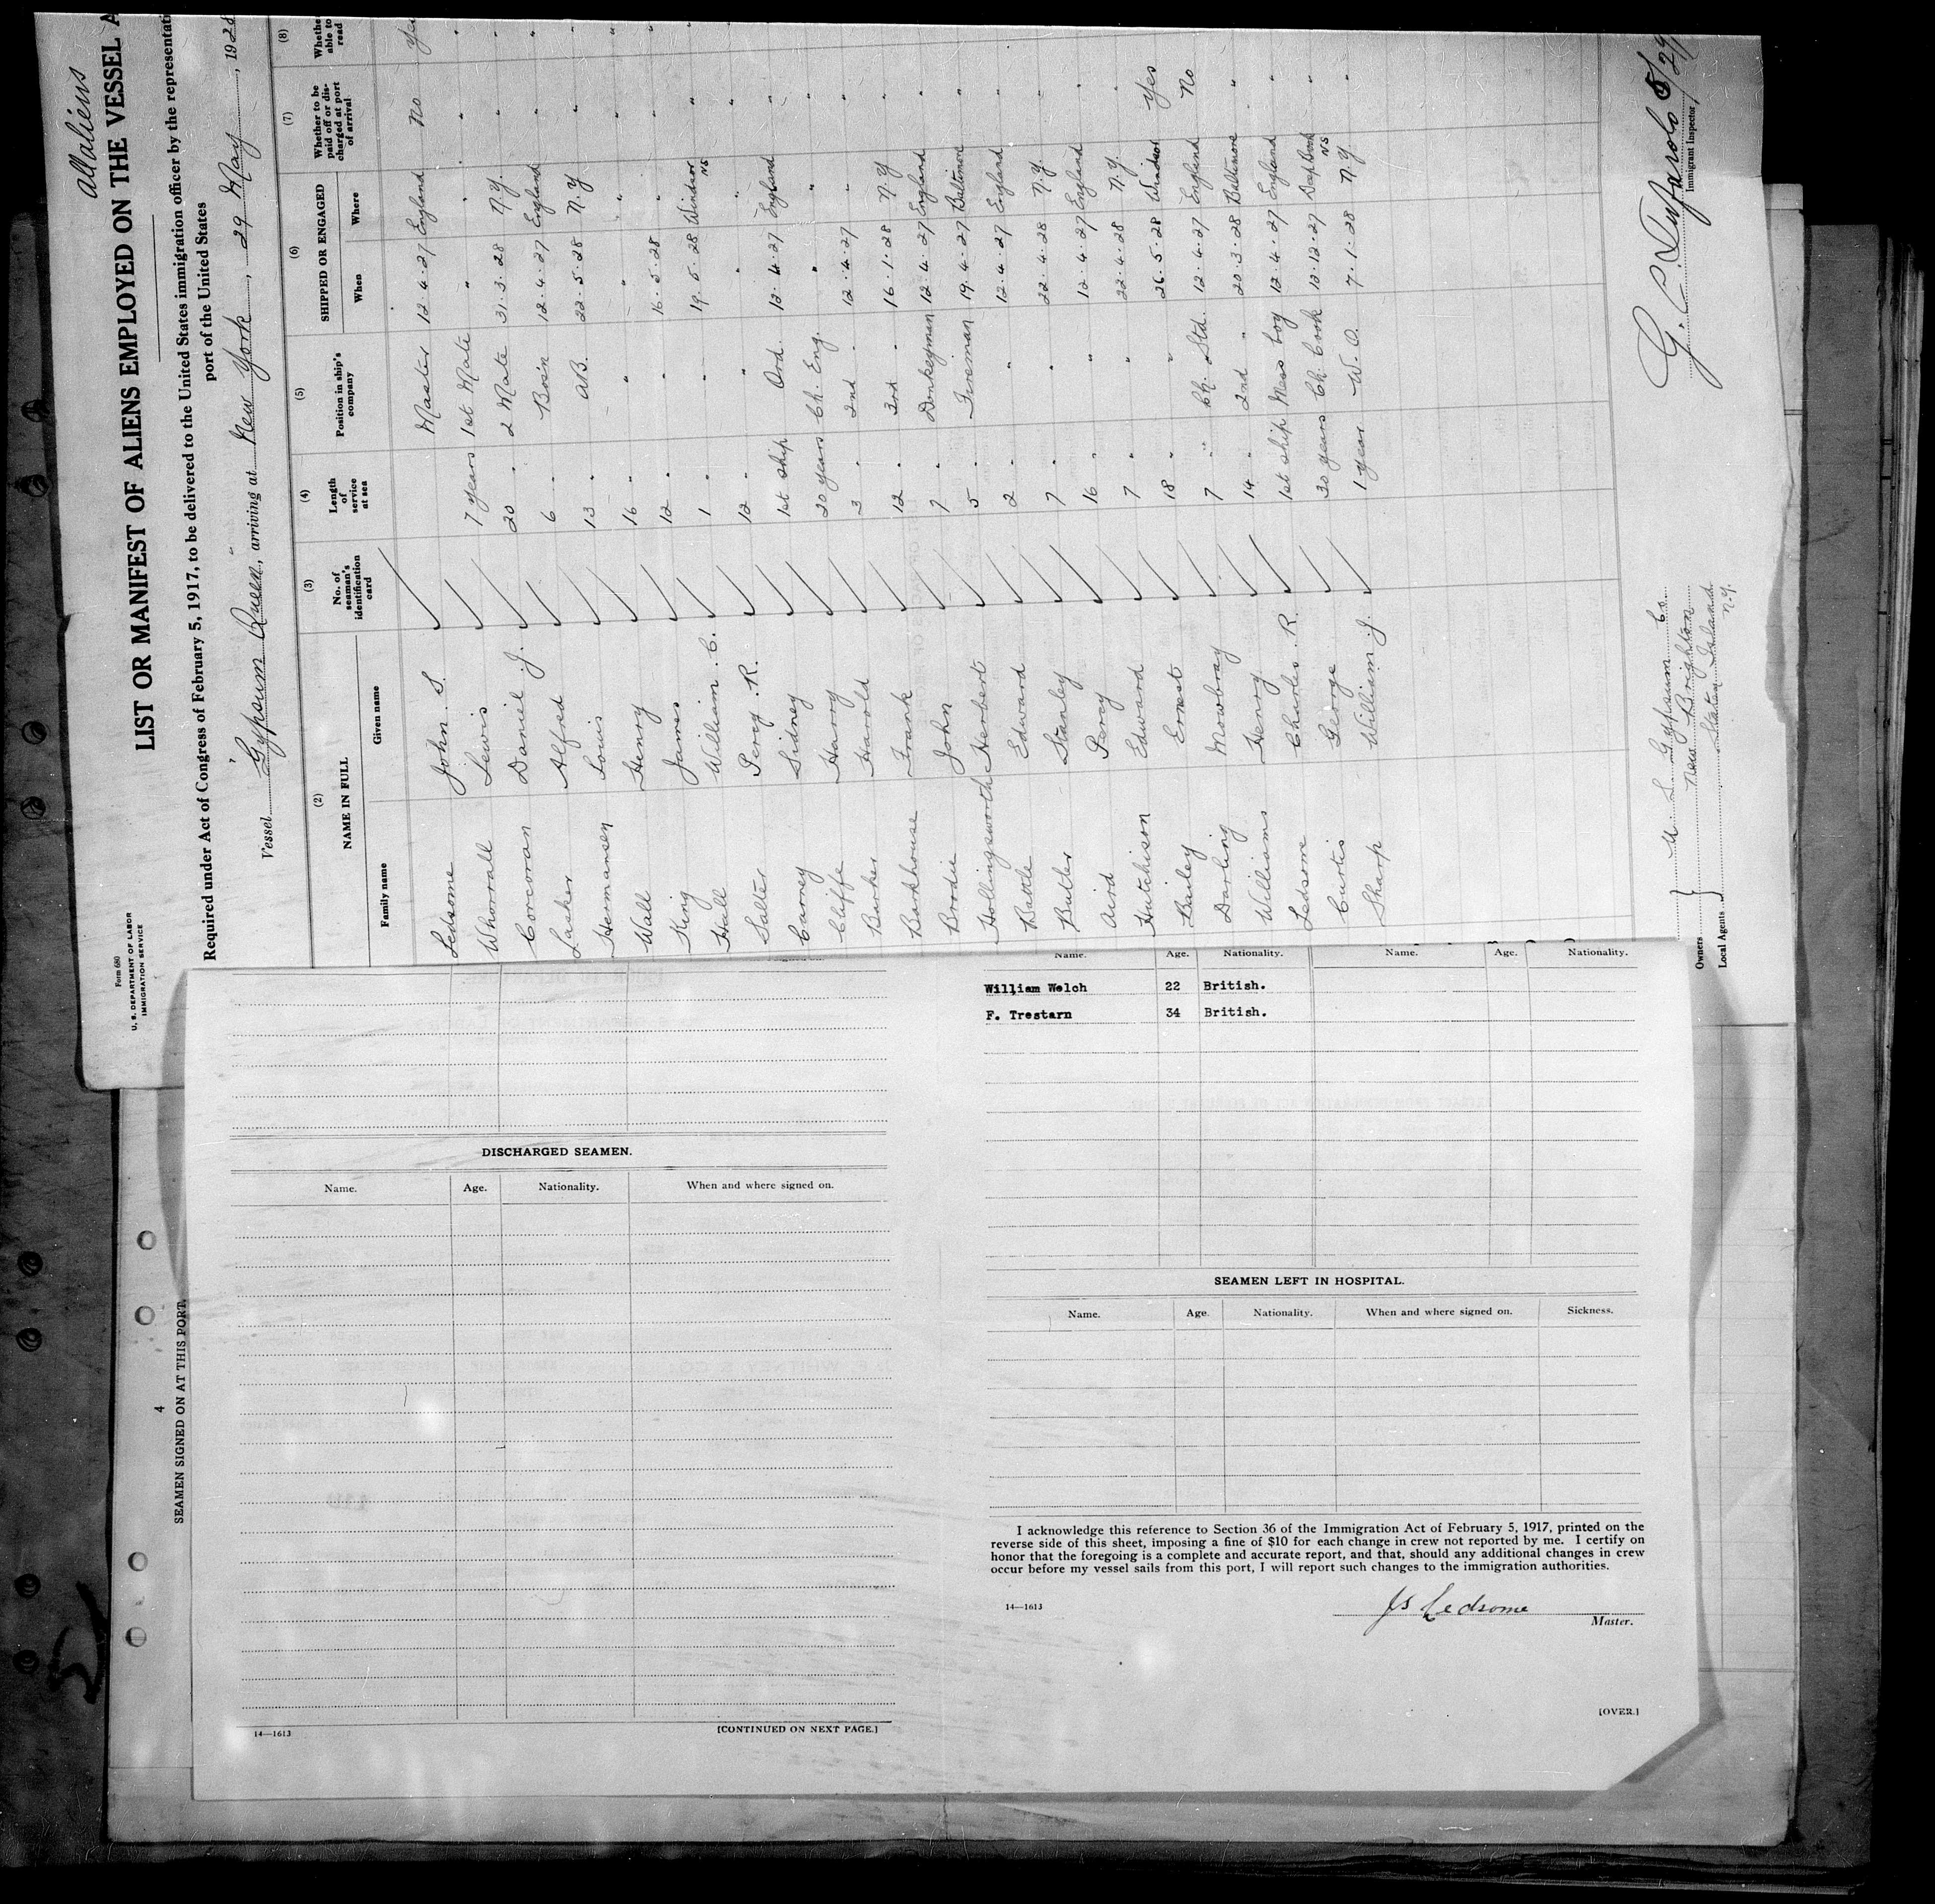 all aliens
Form 680
U. S. DEPARTMENT OF LABOR
IMMIGRATION SERVICE
LIST OR MANIFEST OF ALIENS EMPLOYED ON THE VESSEL A
Required under Act of Congress of February 5, 1917, to be delivered to the United States immigration officer by the representati
port of the United States
Vessel "Gypsum Queen", arriving at New York, 29 May, 1928
(2) (3) (4) (5) (6) (7) (8)
NAME IN FULL
Family name Given name
No. of seaman's identification card
Length of service at sea
Position in ship's company
SHIPPED OR ENGAGED
When Where
Whether to be paid off or discharged at port of arrival
Whethe able to read
Ledsome John S. Master 12.4.27 England No Yes
Whorrall Lewis 7 years 1st Mate " " " "
Corcoran Daniel J. 20 " 2 Mate 31.3.28 N.Y. " "
Lasker Alfred 6 " Bos'n 12.4.27 England " "
Hermansen Louis 13 " AB. 22.5.28 N.Y " "
Wall Henry 16 " " " " " "
King James 12 " " 16.5.28 " " "
Hall William C. 1 " " 19.5.28 Windsor NS "
Salter Percy R. 12 " " " " "
Carney Sidney 1st ship Ord. 12.4.27 England "
Cliffe Harry 20 years Ch. Eng. " " "
Barker Harold 3 " 2nd " 12.4.27 " "
Barkhouse Frank 12 " 3rd " 16.1.28 N.Y "
Brodie John 7 " Donkeyman 12.4.27 England "
Hollingsworth Herbert 5 " Fireman 19.4.27 Baltimore "
Battle Edward 2 " " 12.4.27 England "
Butler Stanley 7 " " 22.4.28 N.Y. "
Aird Percy 16 " " 12.4.27 England "
Hutchison Edward 7 " " 22.4.28 N.Y. "
Bailey Ernest 18 " " 26.5.28 Windsor Yes
Darling Mowbray 7 " Ch. Std. 12.4.27 England No
Williams Henry 14 " 2nd " 20.3.28 Baltimore "
Ledsome Charles R. 1st ship Mess boy 12.4.27 England "
Curtis George 30 years Ch. Cook 10.12.27 NS "
Sharp William J. 1 year W.O. 7.1.28 N.Y. "
Owners
Local Agents
U. S. Gypsum Co.
New Brighton
Staten Island
N.Y.
Immigrant Inspector
4
SEAMEN SIGNED ON AT THIS PORT.
DISCHARGED SEAMEN.
Name. Age. Nationality. When and where signed on.
14—1613
[CONTINUED ON NEXT PAGE.]
Name. Age. Nationality. Name. Age. Nationality.
William Welch 22 British.
F. Trestarn 34 British.
SEAMEN LEFT IN HOSPITAL.
Name. Age. Nationality. When and where signed on. Sickness.
I acknowledge this reference to Section 36 of the Immigration Act of February 5, 1917, printed on the
reverse side of this sheet, imposing a fine of $10 for each change in crew not reported by me. I certify on
honor that the foregoing is a complete and accurate report, and that, should any additional changes in crew
occur before my vessel sails from this port, I will report such changes to the immigration authorities.
14—1613
JS Ledsome
Master.
[OVER.]